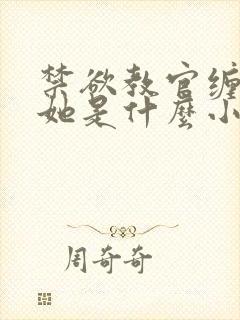 禁欲教官缠
她是什麼小
周奇奇